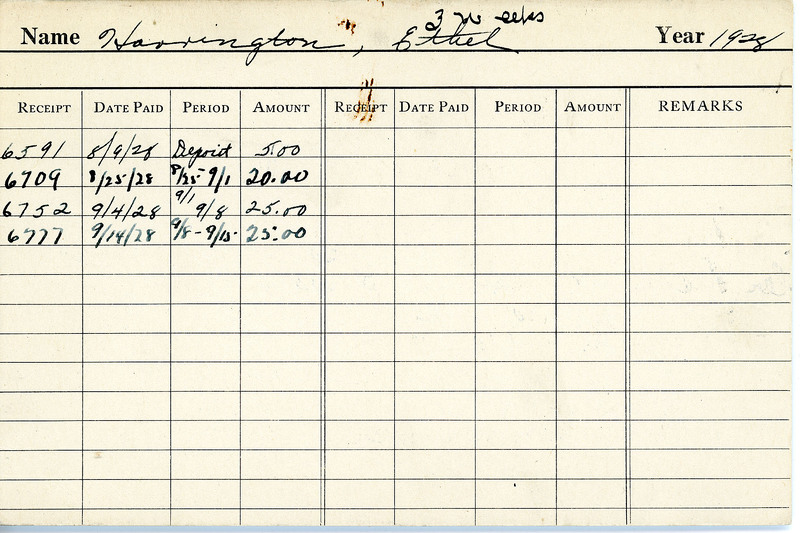 3 weeks
Name Harrington, Ethel Year 1928
RECEIPT DATE PAID PERIOD AMOUNT RECEIPT DATE PAID PERIOD AMOUNT REMARKS
6591 8/9/28 Deposit 5.00
6709 8/25/28 8/25-9/1 20.00
6752 9/4/28 9/1 9/8 25.00
6777 9/14/28 9/8-9/15- 25.00